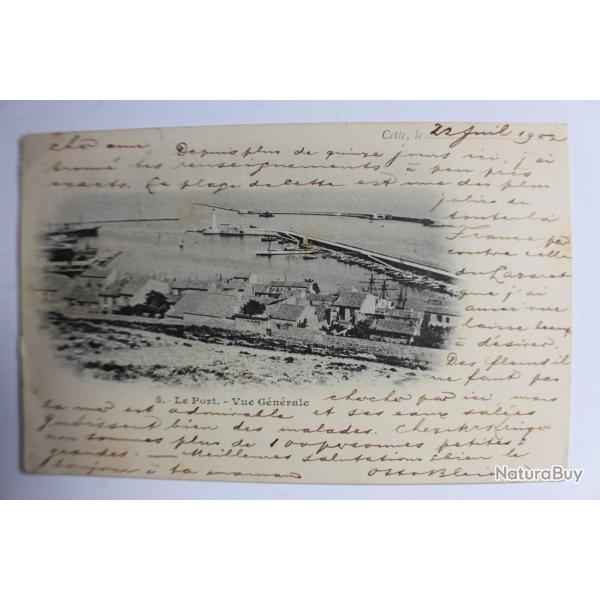 Cette, le 22 Juil 1902
cher ami, Depuis plus de quinze jours ici, j'ai
trouvé tes renseignements à peu près
exacts. La plage de Cette est une des plus
jolies de
toute la
France par
contre celle
du Lazaret
que j'ai
aussi vue
laisse beauc
à désirer.
Des il
ne faut pas
5. - Le Port. - Vue Générale
chercher par ici mais
la mer est admirable et ses eaux salées
guérissent bien des malades.
nous sommes plus de 100 personnes petites &
grandes. — Meilleures salutations & bien le
bonjour à ta maman Otto
NaturaBuy